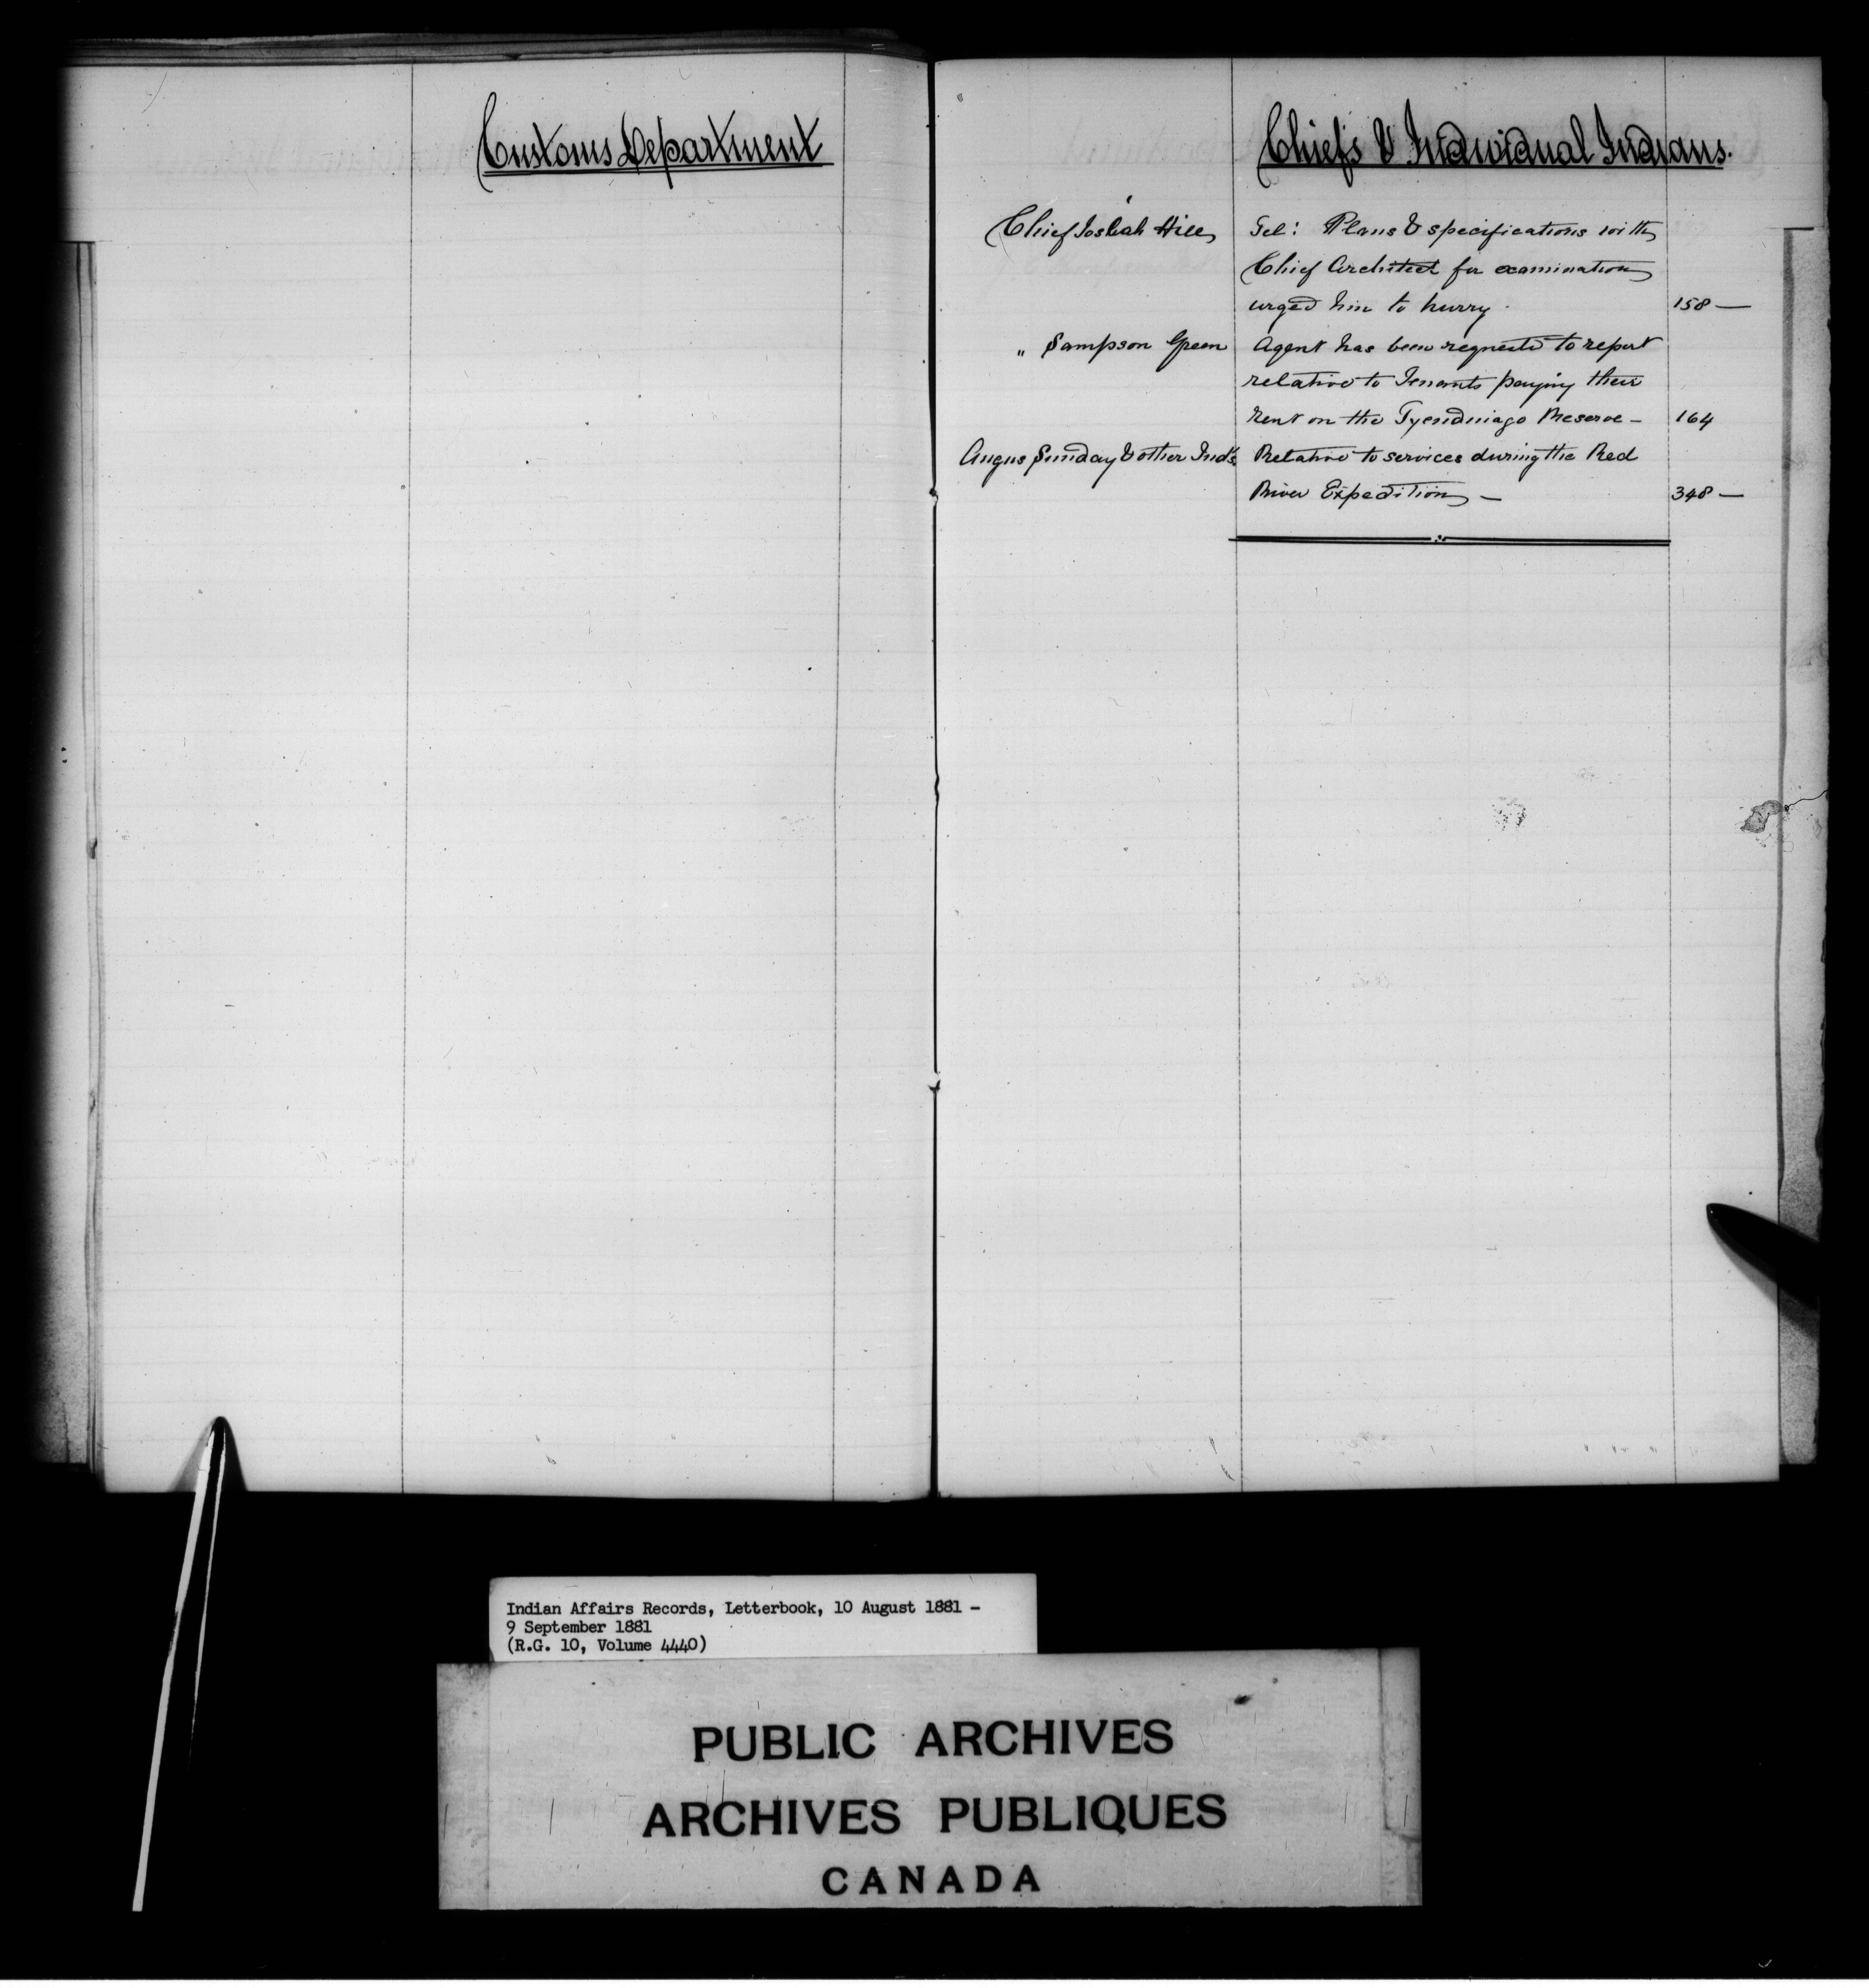 Customs Department
Chiefs & Individual Indians.
Chief Josiah Hill Tel: Plans & specifications with
Chief Architect for examination
urged him to hurry. 158 —
" Sampson Green Agent has been requested to report
relative to Tenants paying their
rent on the Tyendinaga Reserve - 164
Angus Sunday & other Inds. Relative to services during the Red
River Expedition — 348 —
Indian Affairs Records, Letterbook, 10 August 1881 -
9 September 1881
(R.G. 10, Volume 4440)
PUBLIC ARCHIVES
ARCHIVES PUBLIQUES
CANADA